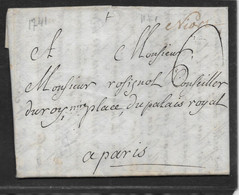 1741
A Monsieur
Monsieur rosignol Conseiller
du roy, place, du palais royal
a paris